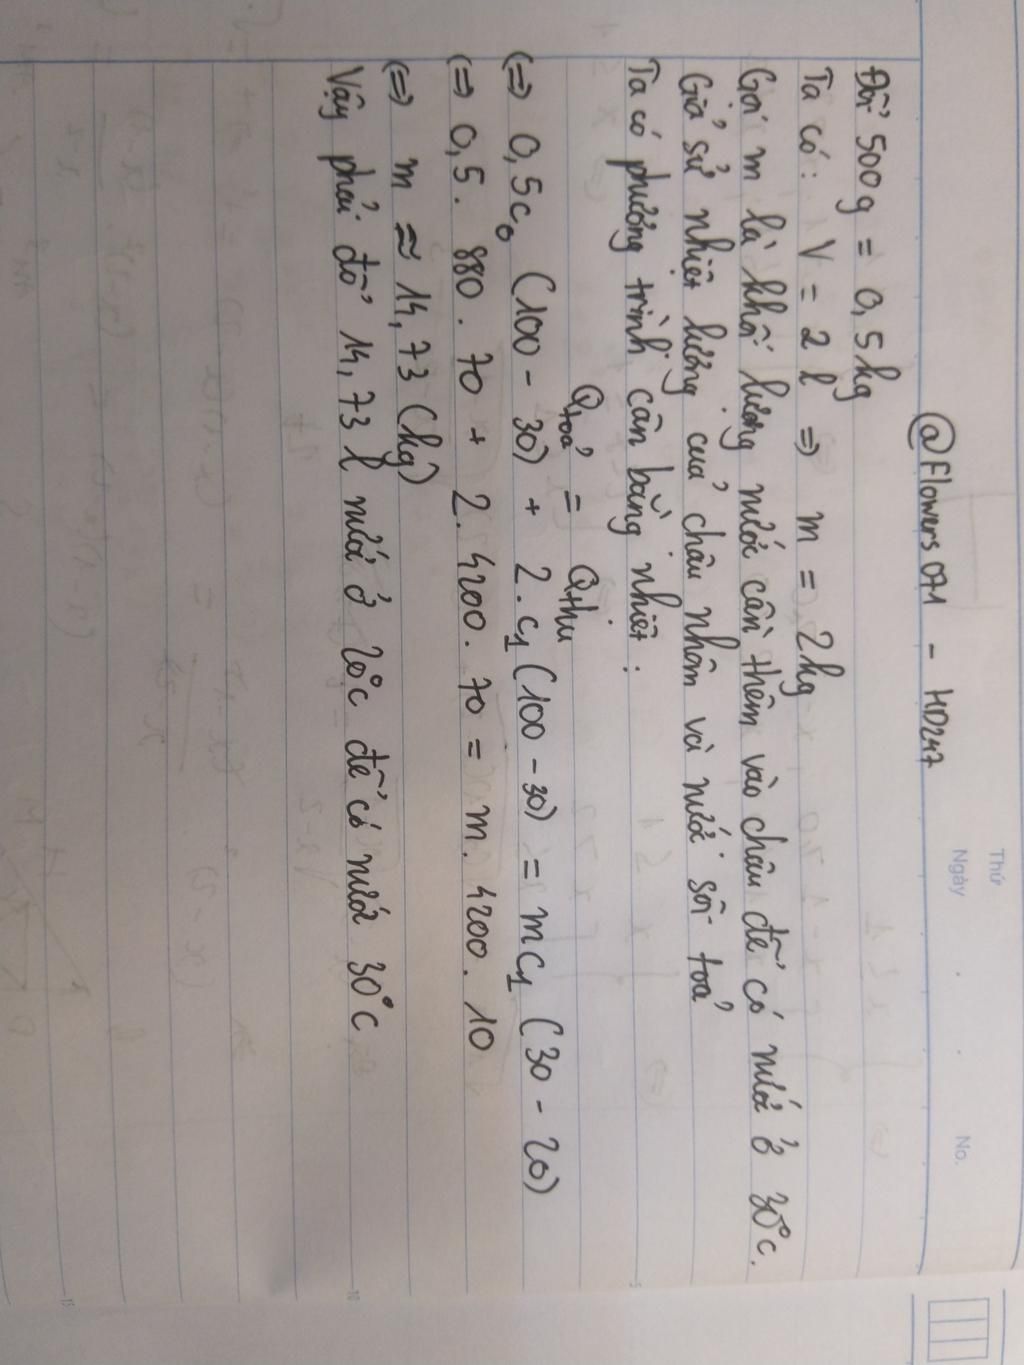 Thứ
Ngày
No.
@Flowers071 - HD247
Đổi 500g = 0,5kg
Ta có: V = 2l => m = 2kg
Gọi m là khối lượng nước cần thêm vào chậu để có nước ở 30°C.
Giả sử nhiệt lượng của chậu nhôm và nước sôi toả
Ta có phương trình cân bằng nhiệt:
Qtoả = Qthu
(=) 0,5c₀ (100 - 30) + 2.c₁ (100 - 30) = mc₁ (30 - 20)
(=) 0,5. 880. 70 + 2. 4200. 70 = m. 4200. 10
(=) m ≈ 14,73 (kg)
Vậy phải đổ 14,73 l nước ở 20°C để có nước 30°C
5
10
15